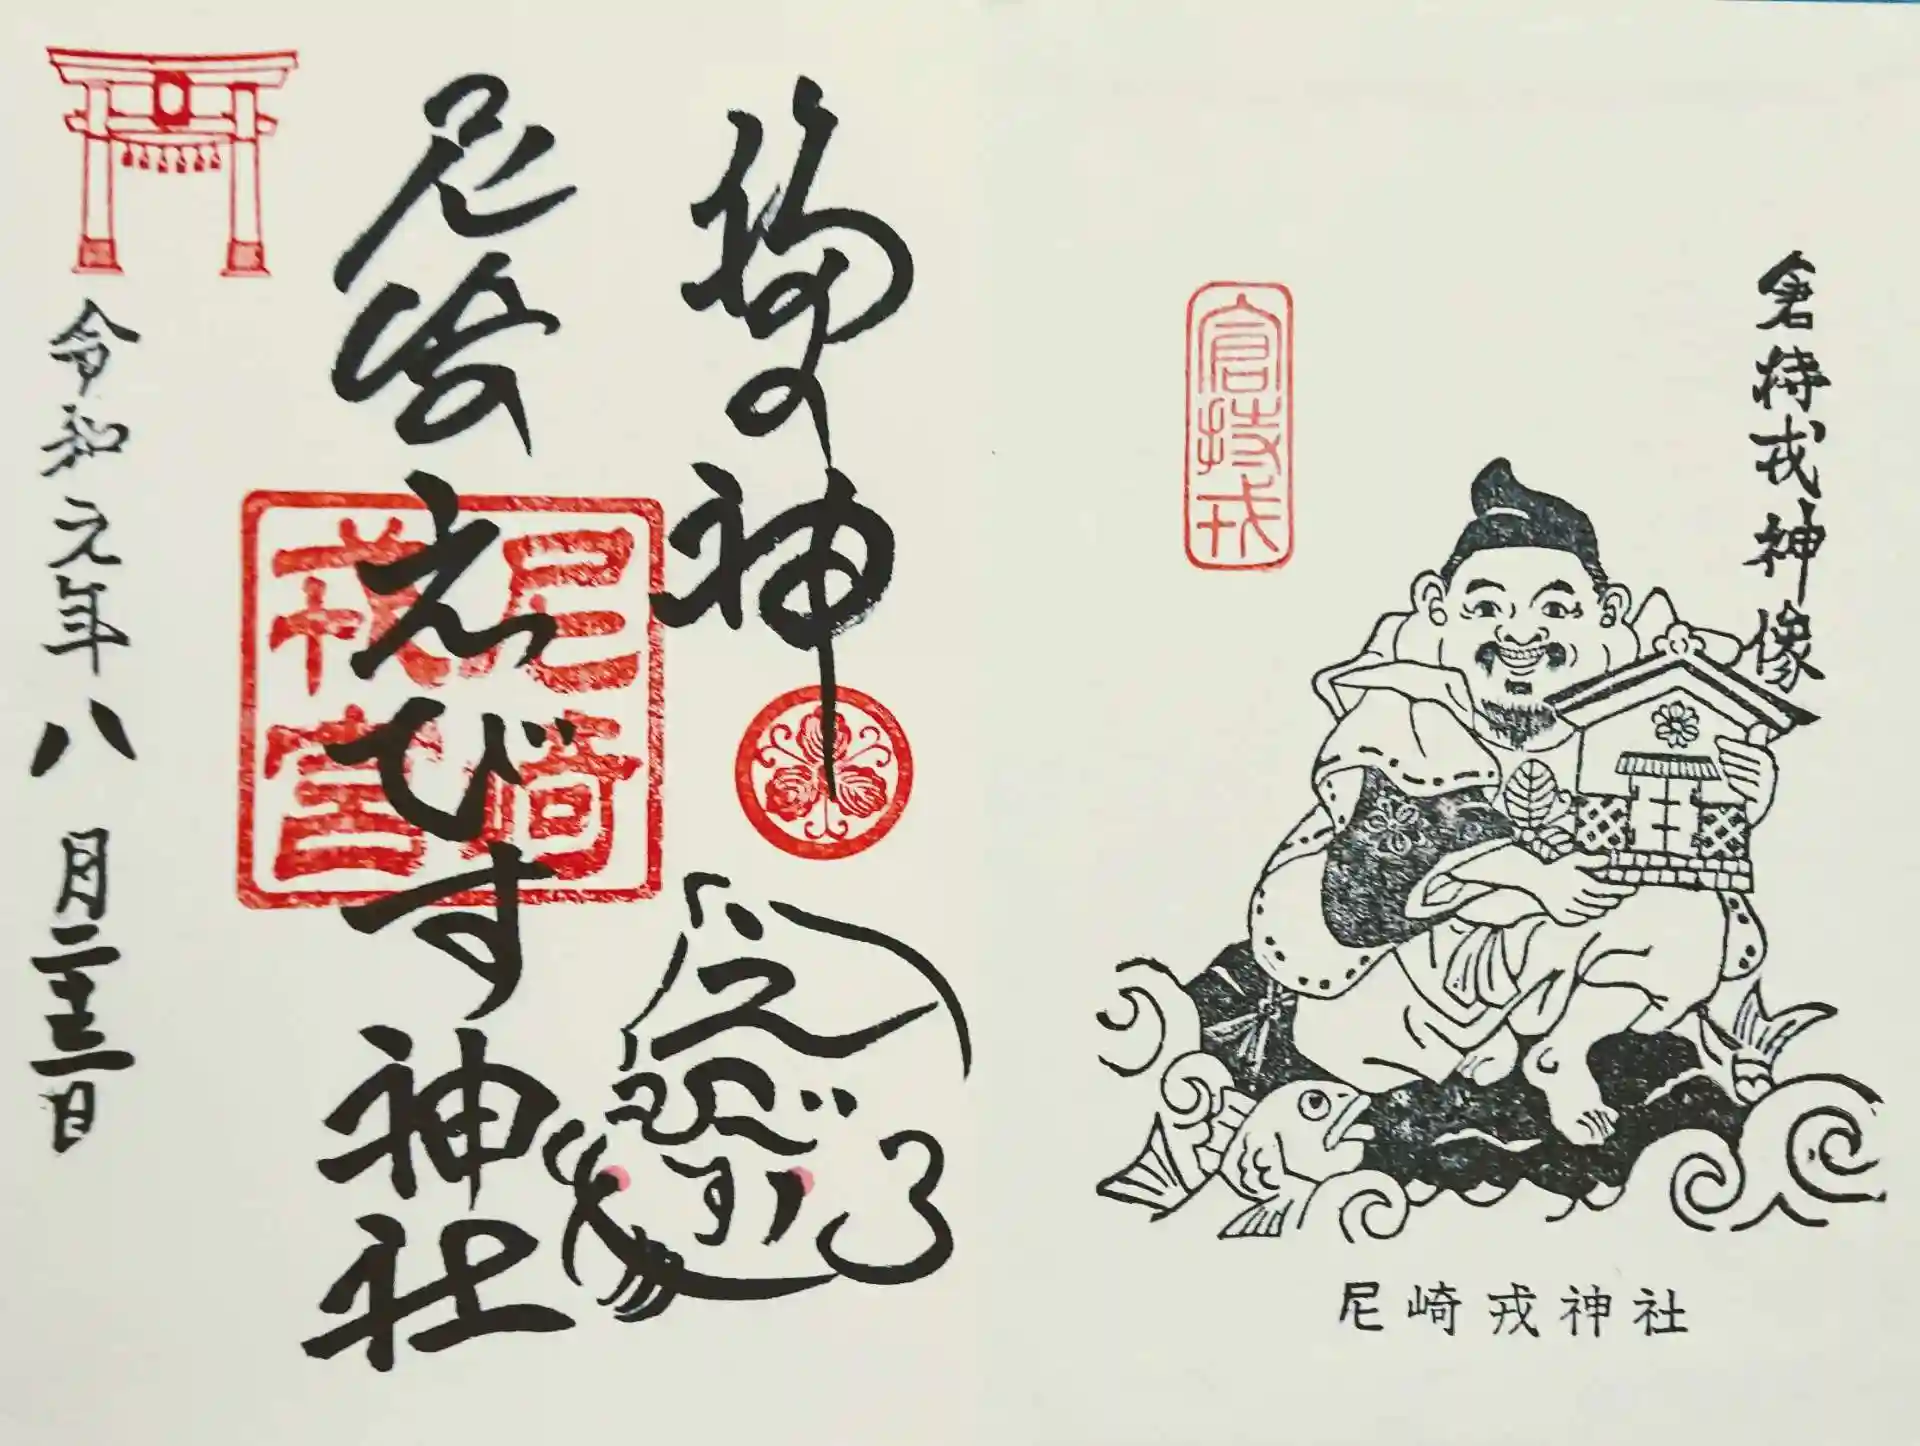 倉持戎神像
倉持戎
尼崎戎神社
福の神
尼崎えびす神社
尼崎
宮
えびす
令和元年八月二十三日